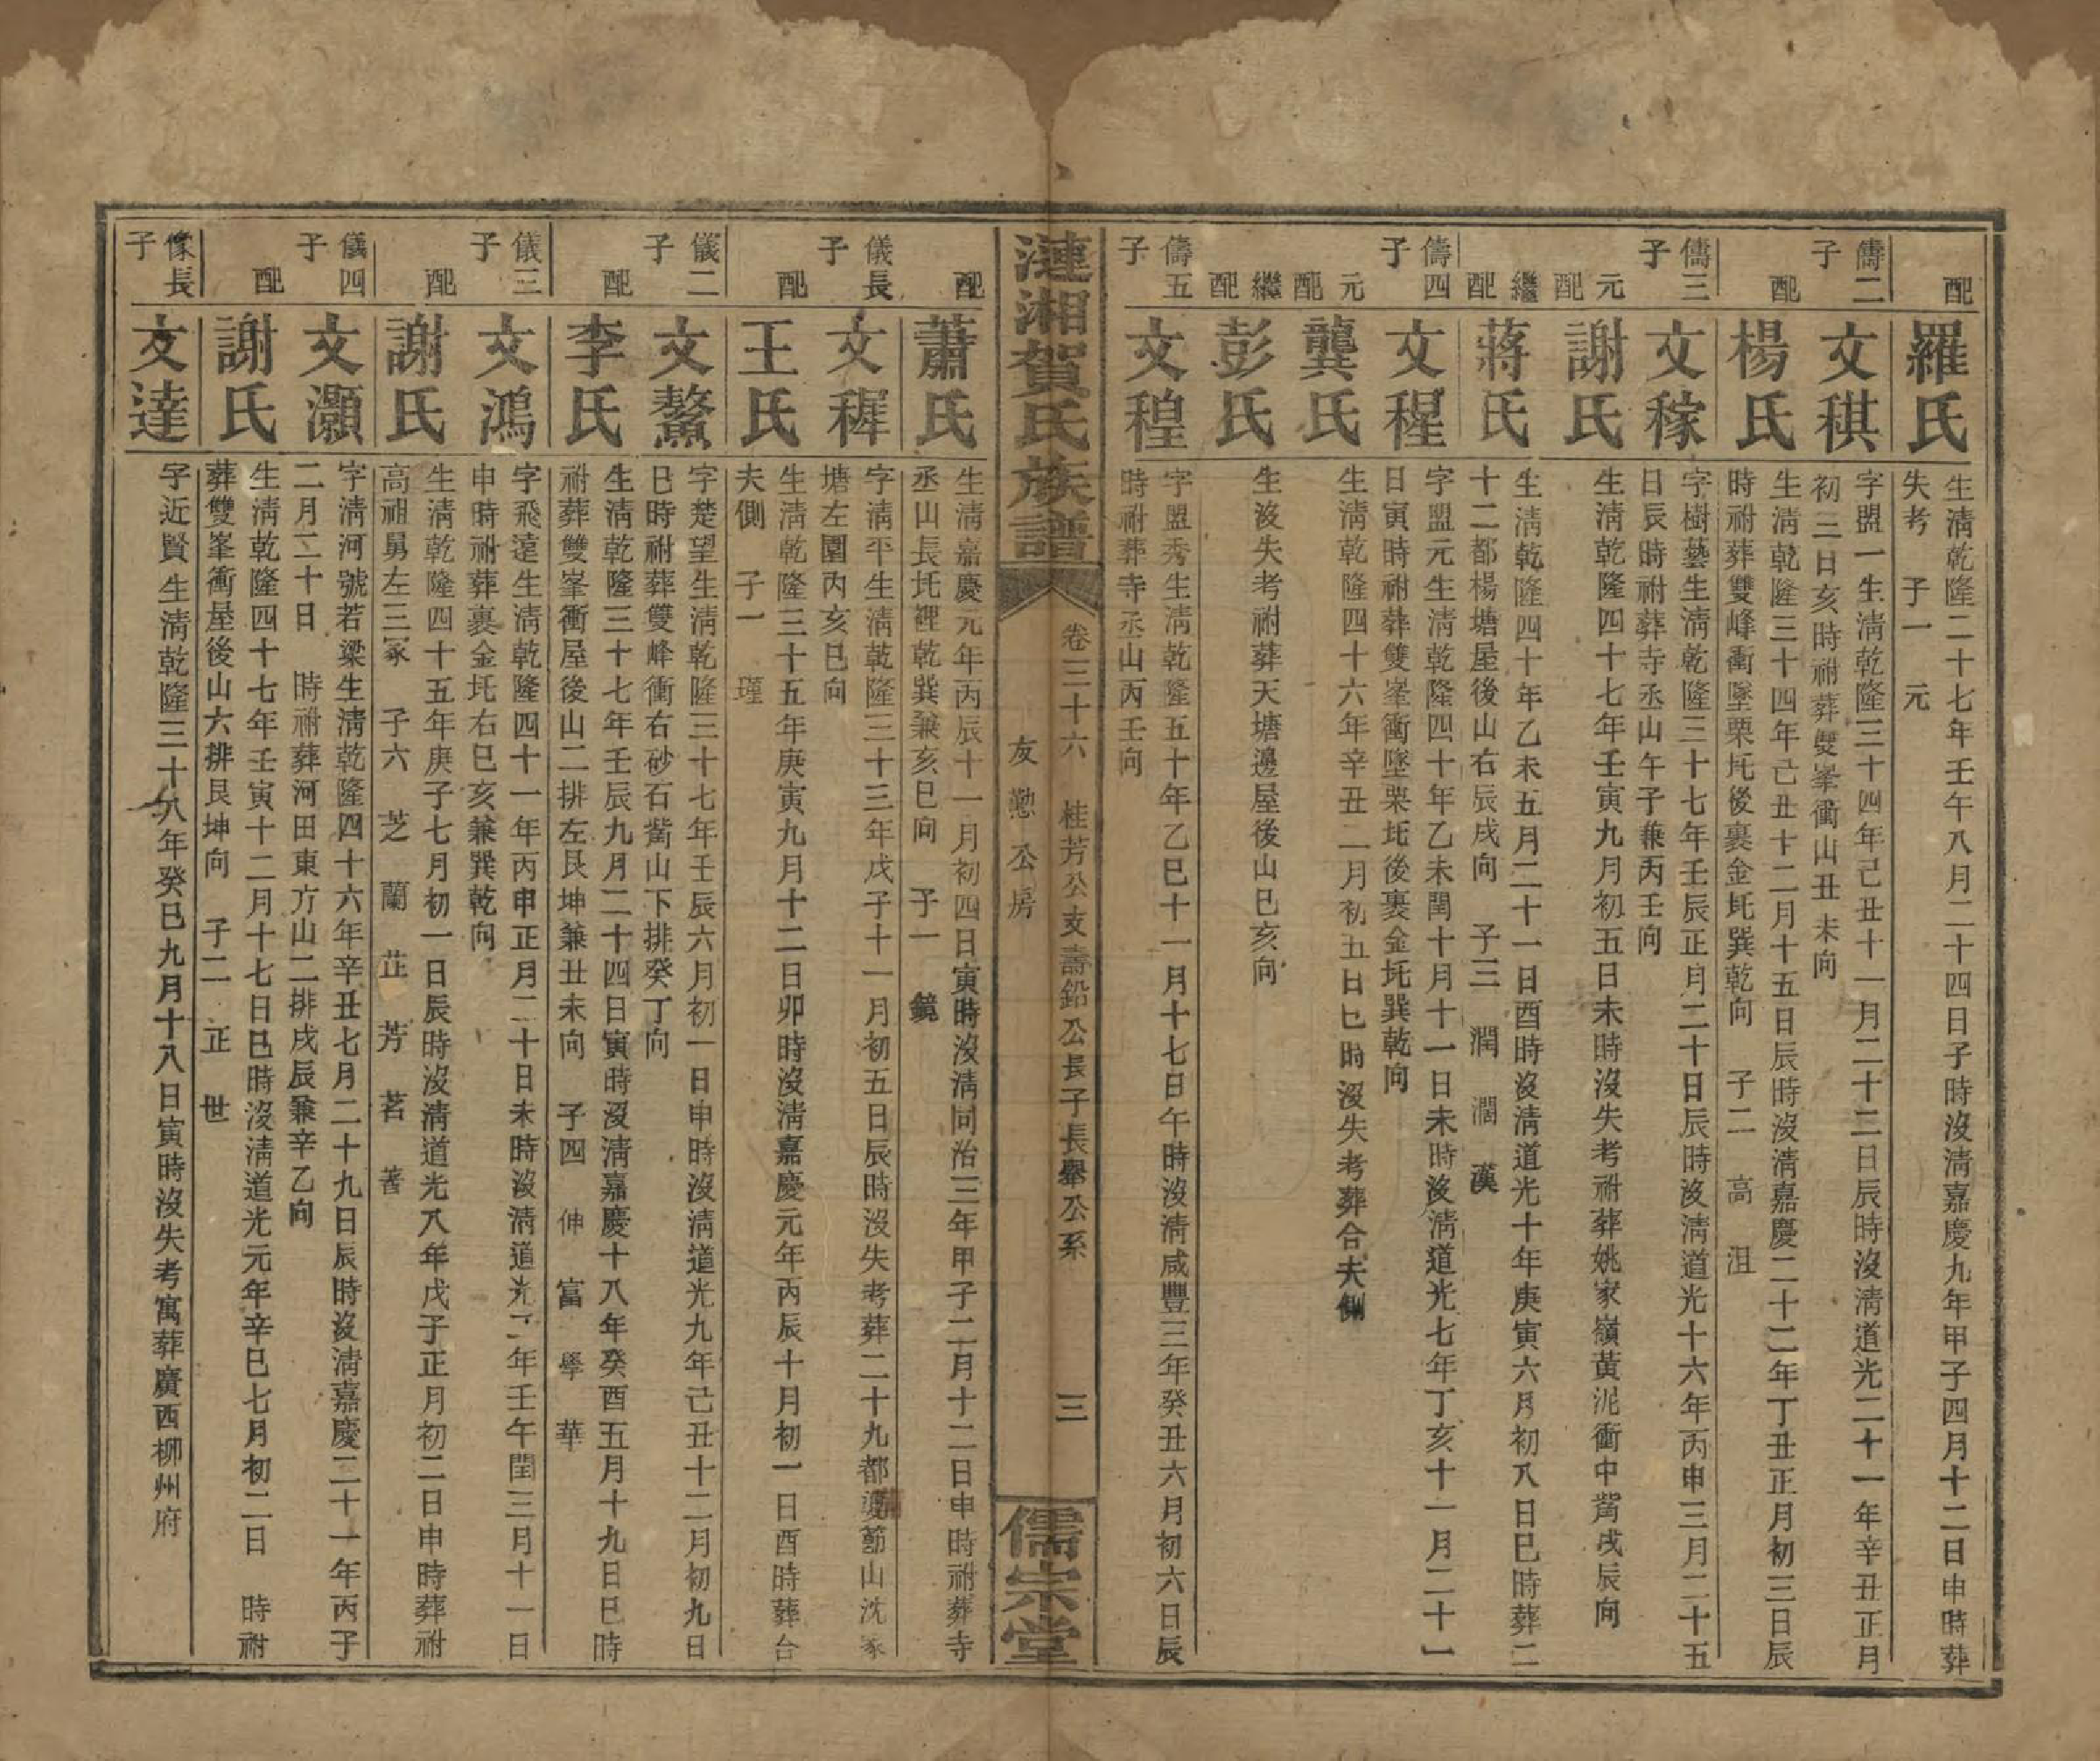 配
羅氏
生淸乾隆二十七年壬午八月二十四日子時沒淸嘉慶九年甲子四月十二日申時葬
失考 子一 元
儔二子
文稘
字盟一生淸乾隆三十四年己丑十一月二十二日辰時沒淸道光二十一年辛丑正月
初三日亥時祔葬雙峯衝山丑未向
配
楊氏
生淸乾隆三十四年己丑十二月十五日辰時沒淸嘉慶二十二年丁丑正月初三日辰
時祔葬雙峰衝墜栗坉後裏金坉巽乾向 子二 高 沮
儔三子
文稼
字樹藝生淸乾隆三十七年壬辰正月二十日辰時沒淸道光十六年丙申三月二十五
日辰時祔葬寺丞山午子兼丙壬向
元配
謝氏
生淸乾隆四十七年壬寅九月初五日未時沒失考祔葬姚家嶺黃泥衝中觜戌辰向
繼配
蔣氏
生淸乾隆四十年乙未五月二十一日酉時沒淸道光十年庚寅六月初八日巳時葬二
十二都楊塘屋後山右辰戌向 子三 潤 澗 漢
儔四子
文稺
字盟元生淸乾隆四十年乙未閏十月十一日未時沒淸道光七年丁亥十一月二十一
日寅時祔葬雙峯衝墜栗坉後裏金坉巽乾向
元配
龔氏
生淸乾隆四十六年辛丑二月初五日巳時沒失考葬合夫側
繼配
彭氏
生沒失考祔葬天塘邊屋後山巳亥向
儔五子
文稑
字盟秀生淸乾隆五十年乙巳十一月十七日午時沒淸咸豐三年癸丑六月初六日辰
時祔葬寺丞山丙壬向
漣湘賀氏族譜
卷三十六 桂芳公支壽鉛公長子長舉公系
友懃公房
三
儒宗堂
配
蕭氏
生淸嘉慶元年丙辰十一月初四日寅時沒淸同治三年甲子二月十二日申時祔葬寺
丞山長坉裡乾巽兼亥巳向 子一 鏡
儀長子
文稺
字淸平生淸乾隆三十三年戊子十一月初五日辰時沒失考葬二十九都邊節山沈家
塘左園內亥巳向
配
王氏
生淸乾隆三十五年庚寅九月十二日卯時沒淸嘉慶元年丙辰十月初一日酉時葬合
夫側 子一 瑾
儀二子
文鰲
字楚望生淸乾隆三十七年壬辰六月初一日申時沒淸道光九年己丑十二月初九日
巳時祔葬雙峰衝右砂石觜山下排癸丁向
配
李氏
生淸乾隆三十七年壬辰九月二十四日寅時沒淸嘉慶十八年癸酉五月十九日巳時
祔葬雙峯衝屋後山二排左艮坤兼丑未向 子四 伸 富 學 華
儀三子
文鴻
字飛遠生淸乾隆四十一年丙申正月二十日未時沒淸道光二年壬午閏三月十一日
申時祔葬裏金坉右巳亥兼巽乾向
配
謝氏
生淸乾隆四十五年庚子七月初一日辰時沒淸道光八年戊子正月初二日申時葬祔
高祖舅左三冢 子六 芝 蘭 芷 芳 茗 蓍
儀四子
文灝
字淸河號若梁生淸乾隆四十六年辛丑七月二十九日辰時沒淸嘉慶二十一年丙子
二月二十日 時祔葬河田東方山二排戌辰兼辛乙向
配
謝氏
生淸乾隆四十七年壬寅十二月十七日巳時沒淸道光元年辛巳七月初二日 時祔
葬雙峯衝屋後山六排艮坤向 子二 正 世
像長子
文達
字近賢生淸乾隆三十八年癸巳九月十八日寅時沒失考寓葬廣西柳州府